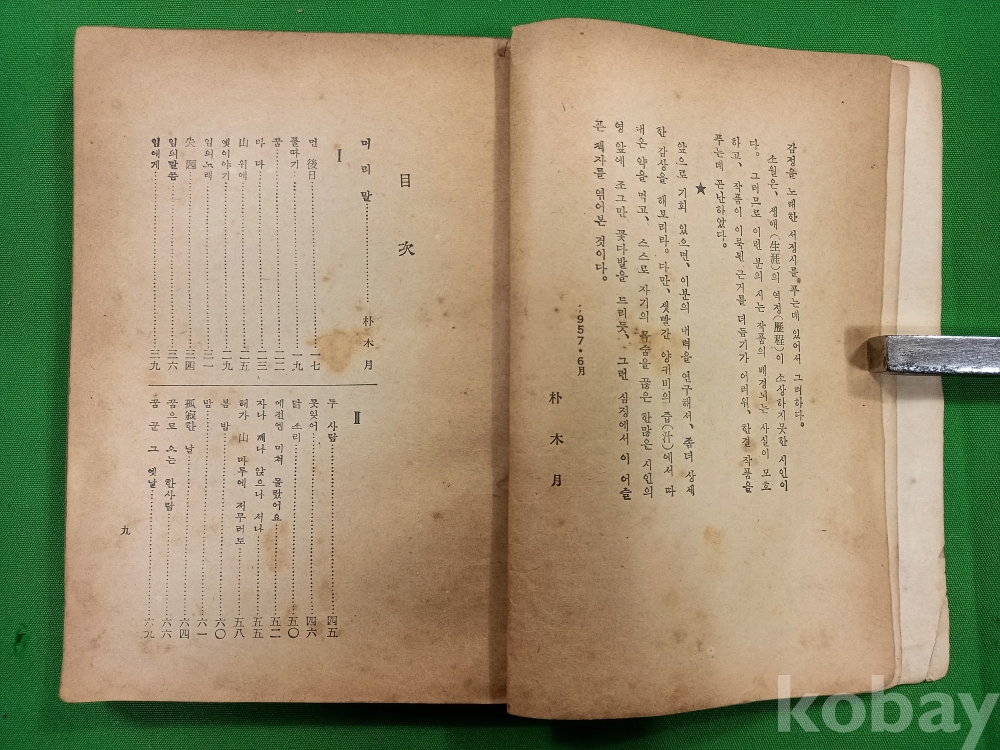 감정을 노래한 서정시를 푸는데 있어서 그러하다。
소월은、생애(生涯)의 역정(歷程)이 소상하지못한 시인이
다。그러므로 이런 분의 시는 작품의 배경되는 사실이 모호
하고、작품이 이룩된 근거를 더듬기가 어려워、한결 작품을
푸는데 곤난하았다。
★
앞으로 기회 있으면、이분의 내력을 연구해서、좀더 상세
한 감상을 해보리다。다만、샛빨간 양귀비의 즙(汁)에서 따
내온 약을 먹고、스스로 자기의 목숨을 끊은 한많은 시인의
영 앞에 조그만 꽃다발을 드리듯、그런 심정에서 이 어슬
픈 책자를 엮어본 것이다。
·957·6月
朴木月
目次
머리말 朴木月
Ⅰ
먼 後日 一七
풀따기 一九
꿈 二二
마 마 二三
山 위에 二五
옛이야기 二九
임의노래 三一
失題 三四
임의말씀 三六
임에게 三九
Ⅱ
두 사람 四五
못잊어 四六
닭 소리 五〇
예전엔 미처 몰랐어요 五二
자나 깨나 앉으나 서나 五五
해가 山 마루에 저무러도 五八
봄 밤 六〇
밤 六一
孤寂한 날 六四
꿈으로 오는 한사람 六六
꿈 꾼 그 옛날 六九
九
kobay